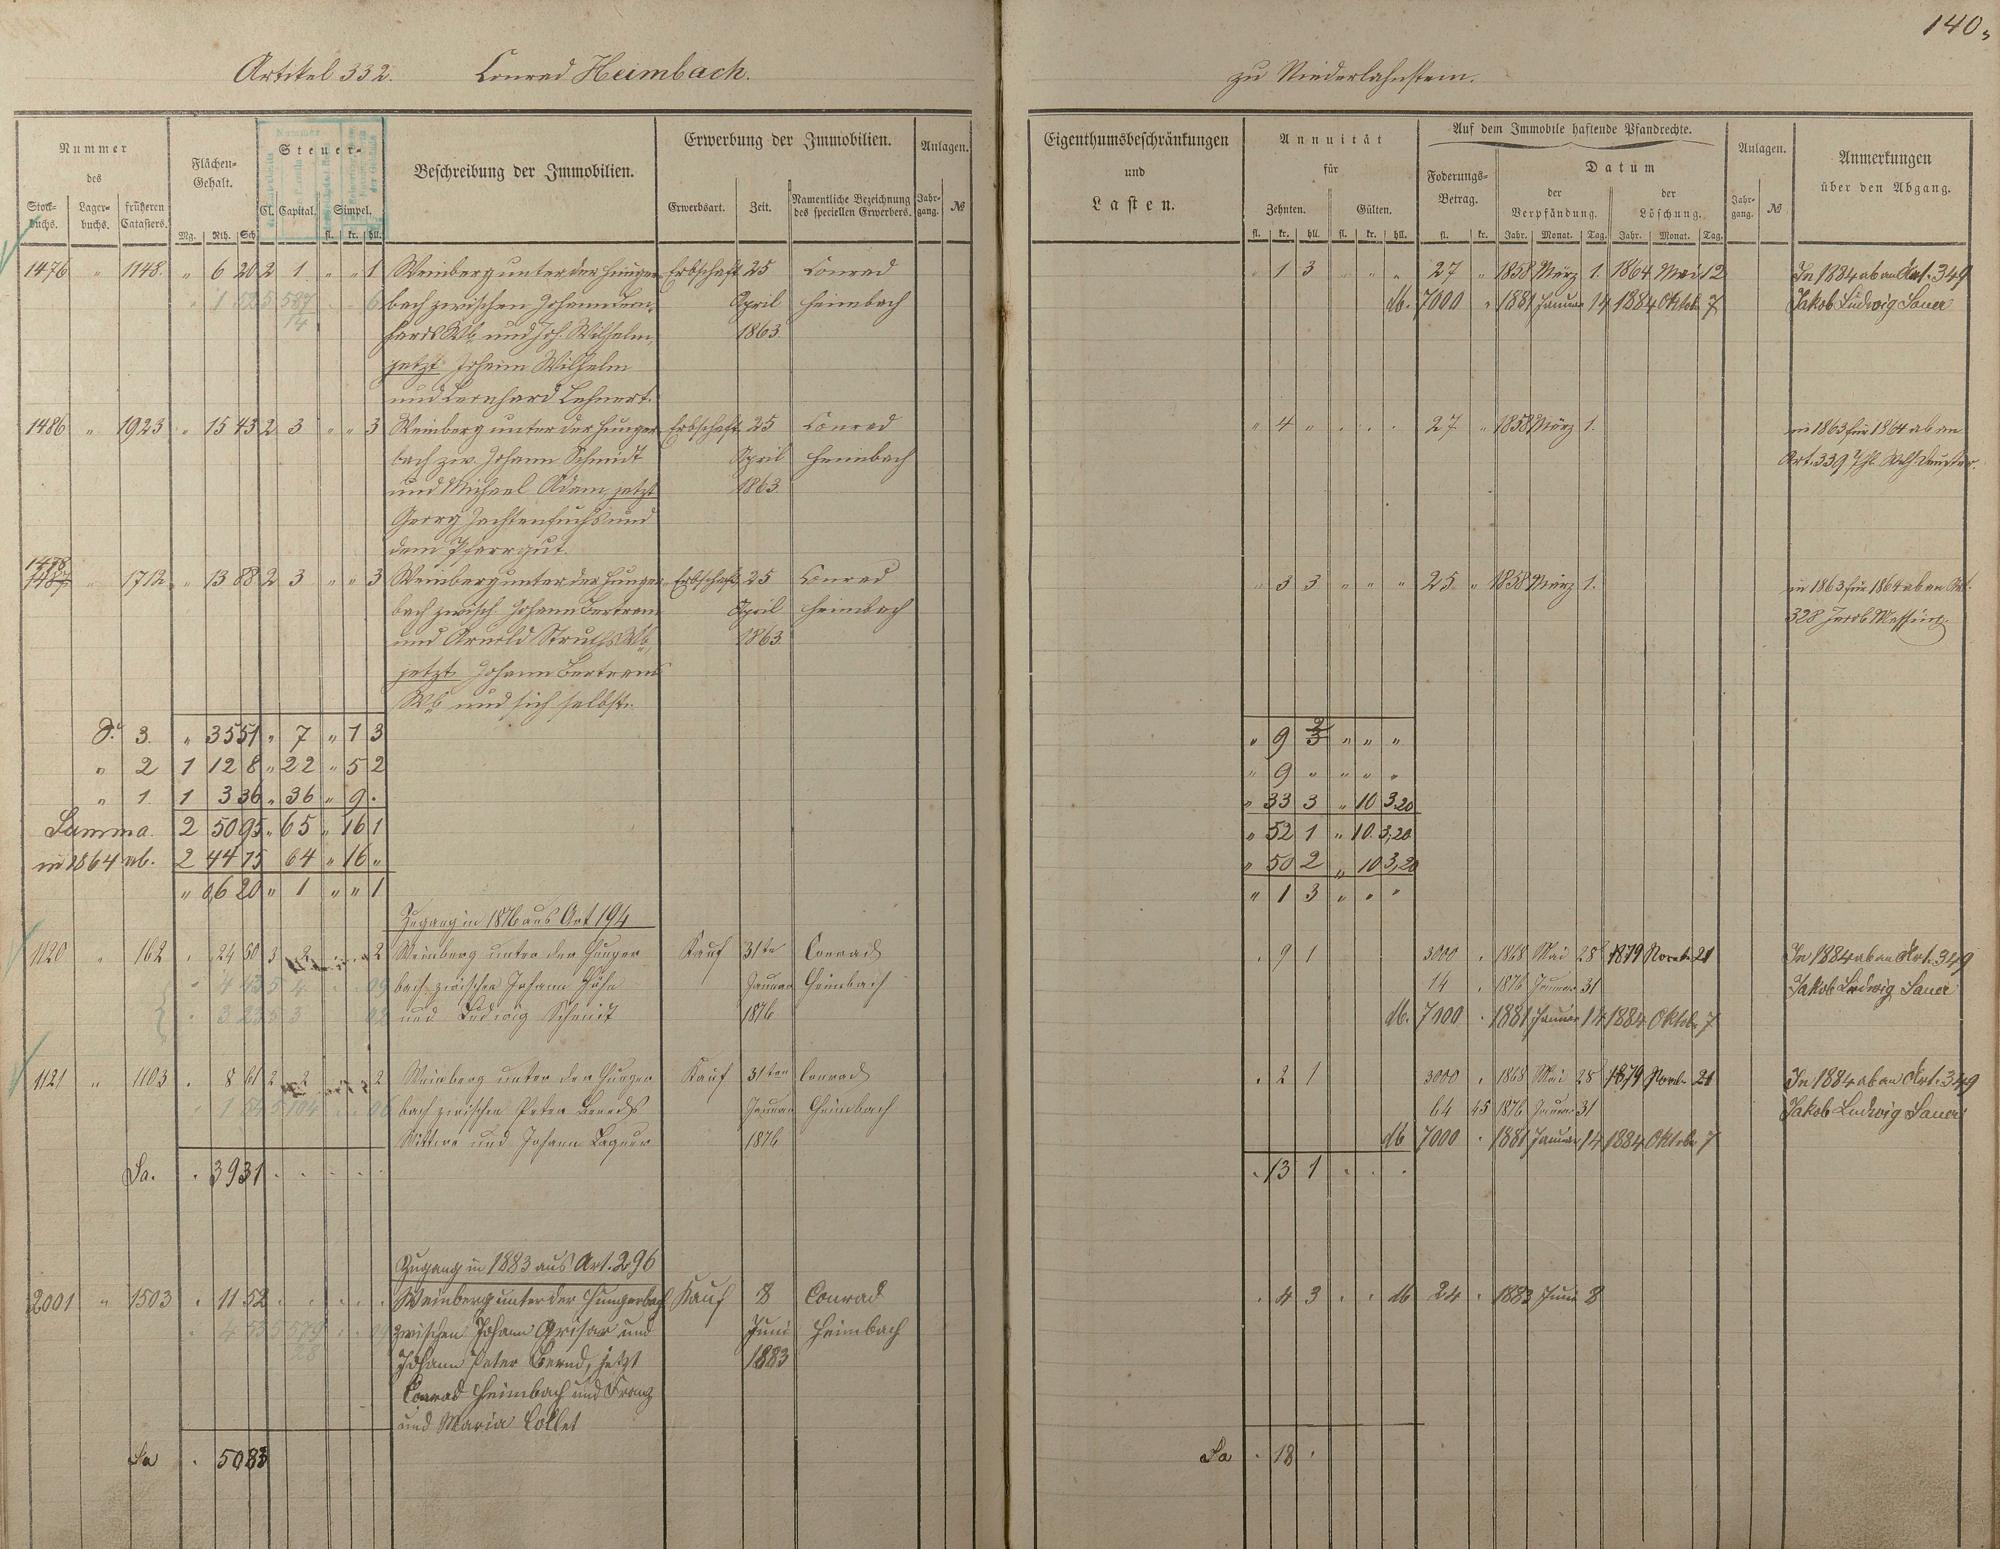 140.
Artikel 332. Conrad Heimbach.
zu Niederlahnstein.
Nummer des
Stock-buchs. Lager-buchs. früheren Catasters.
Flächen-Gehalt.
Mg. Rth. Sch.
Steuer-
Cl. Capital. Simpel.
fl. kr. hll.
Beschreibung der Immobilien.
Erwerbung der Immobilien.
Erwerbsart. Zeit. Namentliche Bezeichnung des speciellen Erwerbers.
Anlagen.
Jahr-gang. №
Eigenthumsbeschränkungen
und
Lasten.
Annuität
für
Zehnten. Gülten.
fl. kr. hll. fl. kr. hll.
Auf dem Immobile haftende Pfandrechte.
Foderungs-Betrag.
fl. kr.
Datum
der Verpfändung. der Löschung.
Jahr. Monat. Tag. Jahr. Monat. Tag.
Anlagen.
Jahr-gang. №
Anmerkungen
über den Abgang.
1476 " 1148. " 6 20 2 1 " " 1 Weinberg unter der Hunger- Erbschaft 25 Conrad
bach zwischen Johann Bern- April Heimbach
hards Wb und Joh. Wilhelm, 1863.
jetzt Johann Wilhelm
und Bernhard Lehnert.
1 3 " " " 27 " 1858 März 1. 1864 Mai 12 In 1884 ab an Art. 349
M. 7000 " 1881 Januar 14 1884 Oktob. 7 Jakob Ludwig Sauer
1486 " 1923 " 15 43 2 3 " " 3 Weinberg unter der Hunger- Erbschaft 25 Conrad
bach zw. Johann Schmidt April Heimbach
und Michael Adam, jetzt 1863.
Georg Zachtenfuchs und
dem Pfarrgut.
" 4 " 27 " 1858 März 1. in 1863 für 1864 ab an
Art. 339
1478
1487 " 1712 " 13 88 2 3 " " 3 Weinberg unter der Hunger- Erbschaft 25 Conrad
bach zwisch. Johann Bertram April Heimbach
und Arnold Struths Wb, 1863.
jetzt Johann Bertrams
Wb und sich selbst.
" 3 3 " " " 25 " 1858 März 1. in 1863 für 1864 ab an Art.
328 Jacob Messing.
S. 3. " 35 51 " 7 " 1 3
" 2 1 12 8 " 22 " 5 2
" 1. 1 3 36 " 36 " 9 .
Summa. 2 50 95 " 65 " 16 1
in 1864 ab. 2 44 75 64 " 16 "
" 6 20 " 1 " " 1
" 9 3 " " "
" 9 " " " "
" 33 3 " 10 3,20
" 52 1 " 10. 3,20
" 50 2 " 10 3,20
" 1 3 " " "
Zugang in 1876 aus Art 194
1120 " 162 . 24 60 3 2 2 Weinberg unter der Hunger- Kauf 31ten Conrad
bach zwischen Johann Januar Heimbach
und Ludwig Schmit 1876
. 9 1 3000 . 1868 Mai 28 1879 Novemb. 21 In 1884 ab an Art. 349
14 . 1876 Januar 31 Jakob Ludwig Sauer
M. 7000 . 1881 Januar 14 1884 Oktob. 7
1121 " 1103 . 8 61 2 2 2 Weinberg unter der Hunger- Kauf 31ten Conrad
bach zwischen Peter Januar Heimbach
Wittwe und Johann 1876
. 2 1 3000 . 1868 Mai 28 1879 Novb. 21 In 1884 ab an Art. 349
64 45 1876 Januar 31 Jakob Ludwig Sauer
M 7000 . 1881 Januar 14 1884 Oktob. 7
Sa. . 39 31
. 13 1 . . .
Zugang in 1883 aus Art. 296
2001 " 1503 . 11 52 Weinberg unter der Hungerbach Kauf 8 Conrad
zwischen Johann Grisar und Juni Heimbach
Johann Peter Bernd, jetzt 1883
Conrad Heimbach und Franz
und Maria Collet
. 4 3 . . M 24 . 1883 Juni 8
Sa . 50 83
Sa . 18 .